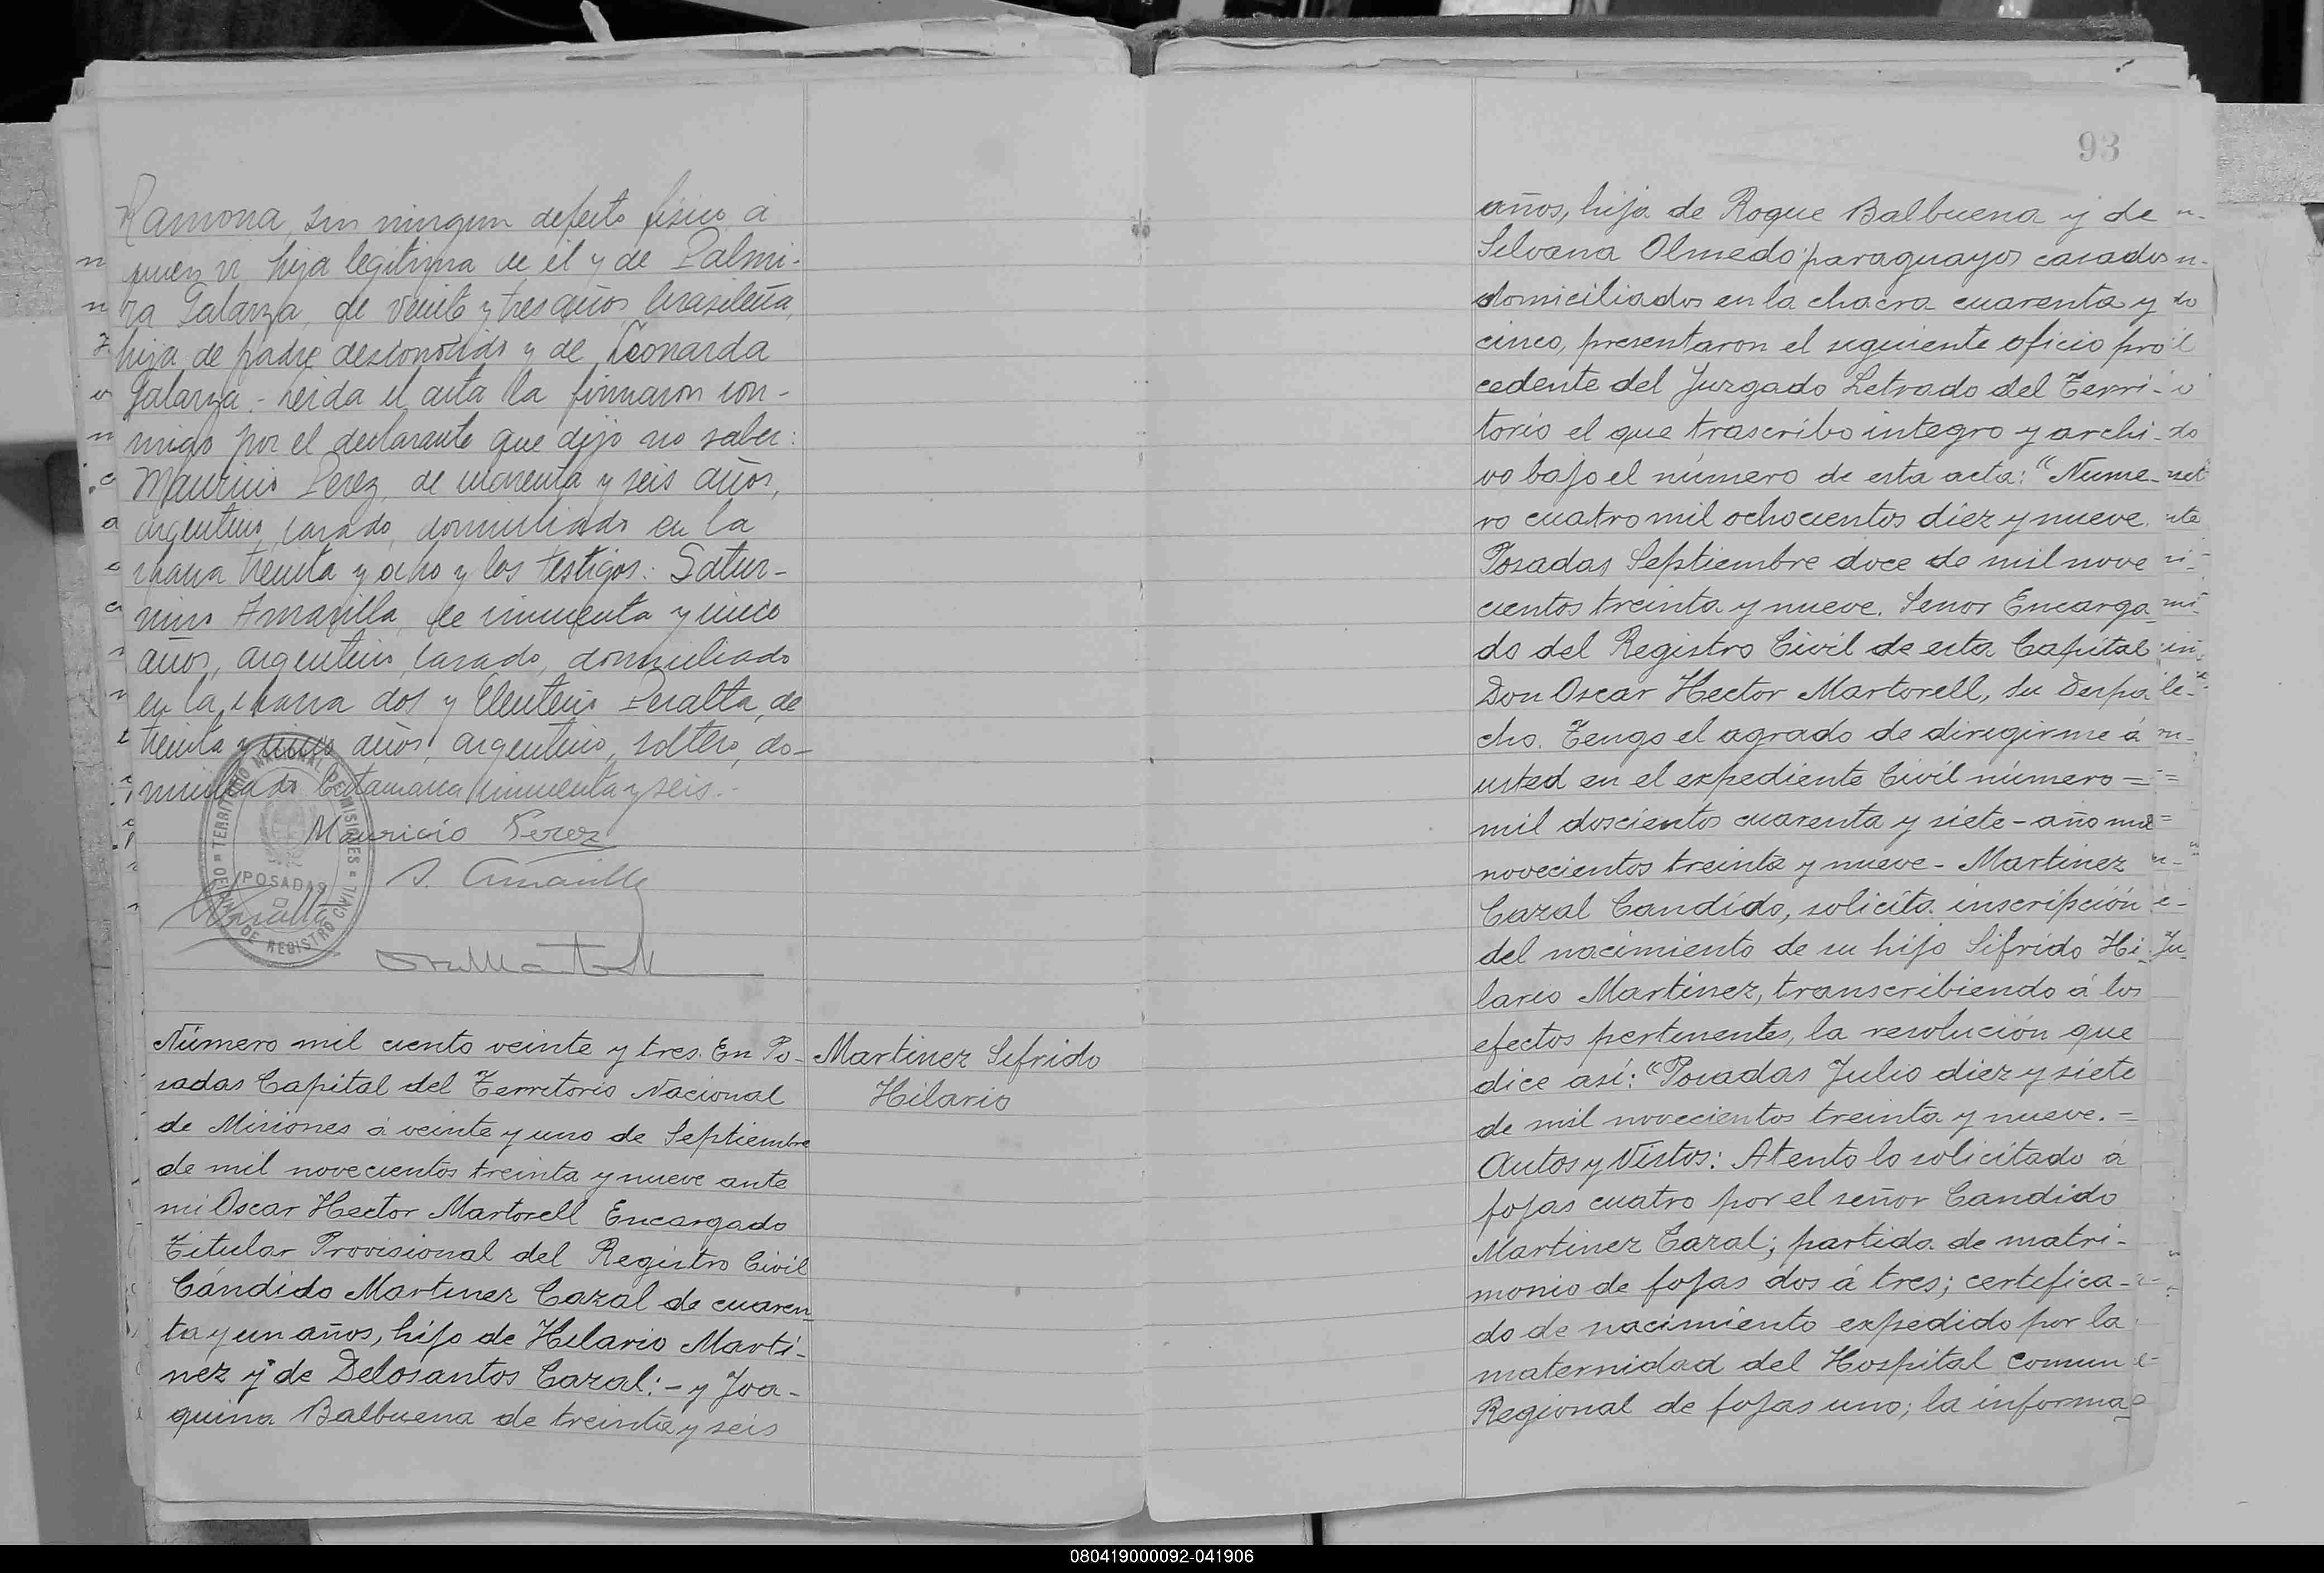 Ramona, sin ningun defecto fisico a
quien vi hija legitima de el y de Palmi-
ra Galarza, de veinte y tres años brasileña,
hija de padre desconocido y de Leonarda
Galarza.- Leida el acta la firmaron con-
migo por el declarante que dijo no saber:
Mauricio Perez, de cuarenta y seis años,
argentino, casado, domiciliado en la
chacra treinta y ocho y los testigos: Satur-
nino Amarilla, de cincuenta y cinco
años, argentino, casado, domiciliado
en la chacra dos y Eleuterio Peralta, de
treinta y cinco años, argentino, soltero, do-
miciliado Catamarca cincuenta y seis.-
Mauricio Perez
S. Amarilla
TERRITORIO NACIONAL DE MISIONES = OFICINA DE REGISTRO CIVIL =
POSADAS
Número mil ciento veinte y tres. En Po-
sadas Capital del Territorio Nacional
de Misiones á veinte y uno de Septiembre
de mil novecientos treinta y nueve ante
mi Oscar Hector Martorell Encargado
Titular Provisional del Registro Civil
Cándido Martinez Cazal de cuaren
ta y un años, hijo de Hilario Marti-
nez y de Delosantos Cazal:- y Joa-
quina Balbuena de treinta y seis
Martinez Sifrido
Hilario
93
años, hija de Roque Balbuena y de
Silvana Olmedo paraguayos casados
domiciliados en la chacra cuarenta y
cinco, presentaron el siguiente oficio pro
cedente del Juzgado Letrado del Terri-
torio el que trascribo integro y archi-
vo bajo el número de esta acta: "Nume-
ro cuatro mil ochocientos diez y nueve.
Posadas Septiembre doce de mil nove
cientos treinta y nueve. Senor Encarga-
do del Registro Civil de esta Capital
Don Oscar Hector Martorell, Su Despa
cho. Tengo el agrado de dirigirme á
usted en el expediente Civil número =
mil doscientos cuarenta y siete - año mil
novecientos treinta y nueve - Martinez
Cazal Candido, solicita inscripción
del nacimiento de su hijo Sifrido Hi-
lario Martinez, transcribiendo á los
efectos pertinentes, la resolución que
dice asi: "Posadas Julio diez y siete
de mil novecientos treinta y nueve. =
Autos y Vistos: Atento lo solicitado a
fojas cuatro por el señor Candido
Martinez Cazal; partida de matri-
monio de fojas dos á tres; certifica-
do de nacimiento expedido por la
maternidad del Hospital Comun
Regional de fojas uno; la informa-
080419000092-041906